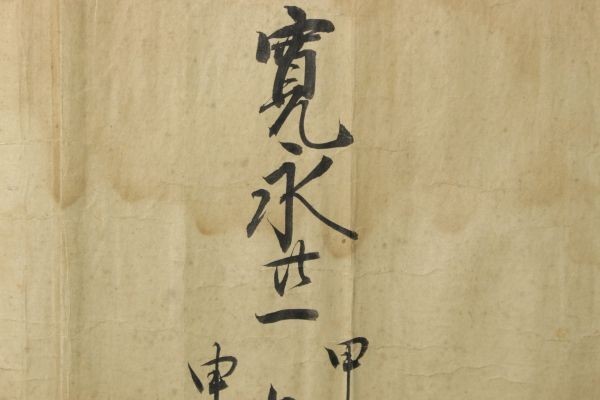 寛永廿一
甲
申